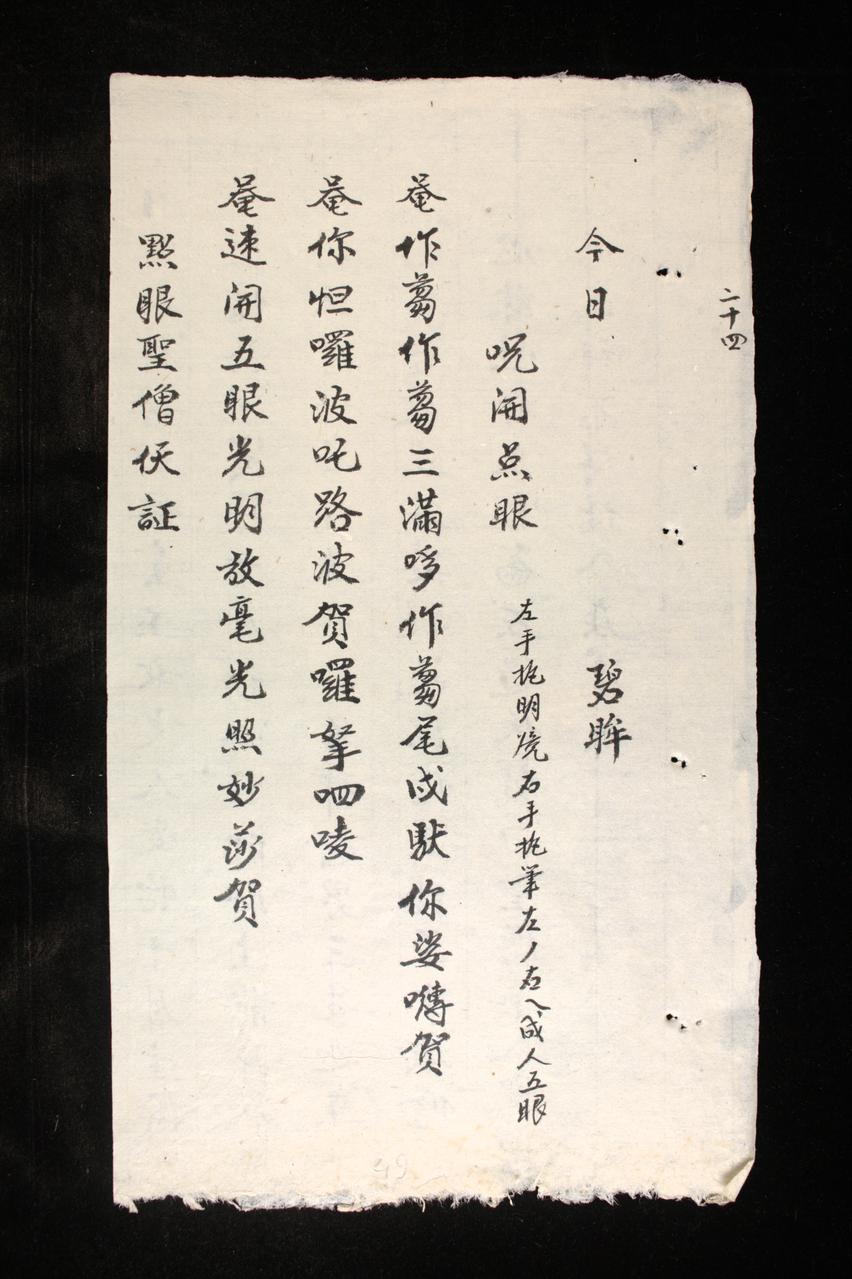 二十四
今日 碧眸
呪開点眼 左手抱明鏡右手抱筆左丿右乀成人五眼
菴作蒭作蒭三滿哆作蒭尾戍馱你娑嚩賀
菴你怛囉波吒路波賀囉拏吧唛
菴速開五眼光明放毫光照妙莎賀
㸃眼聖僧伏証
49